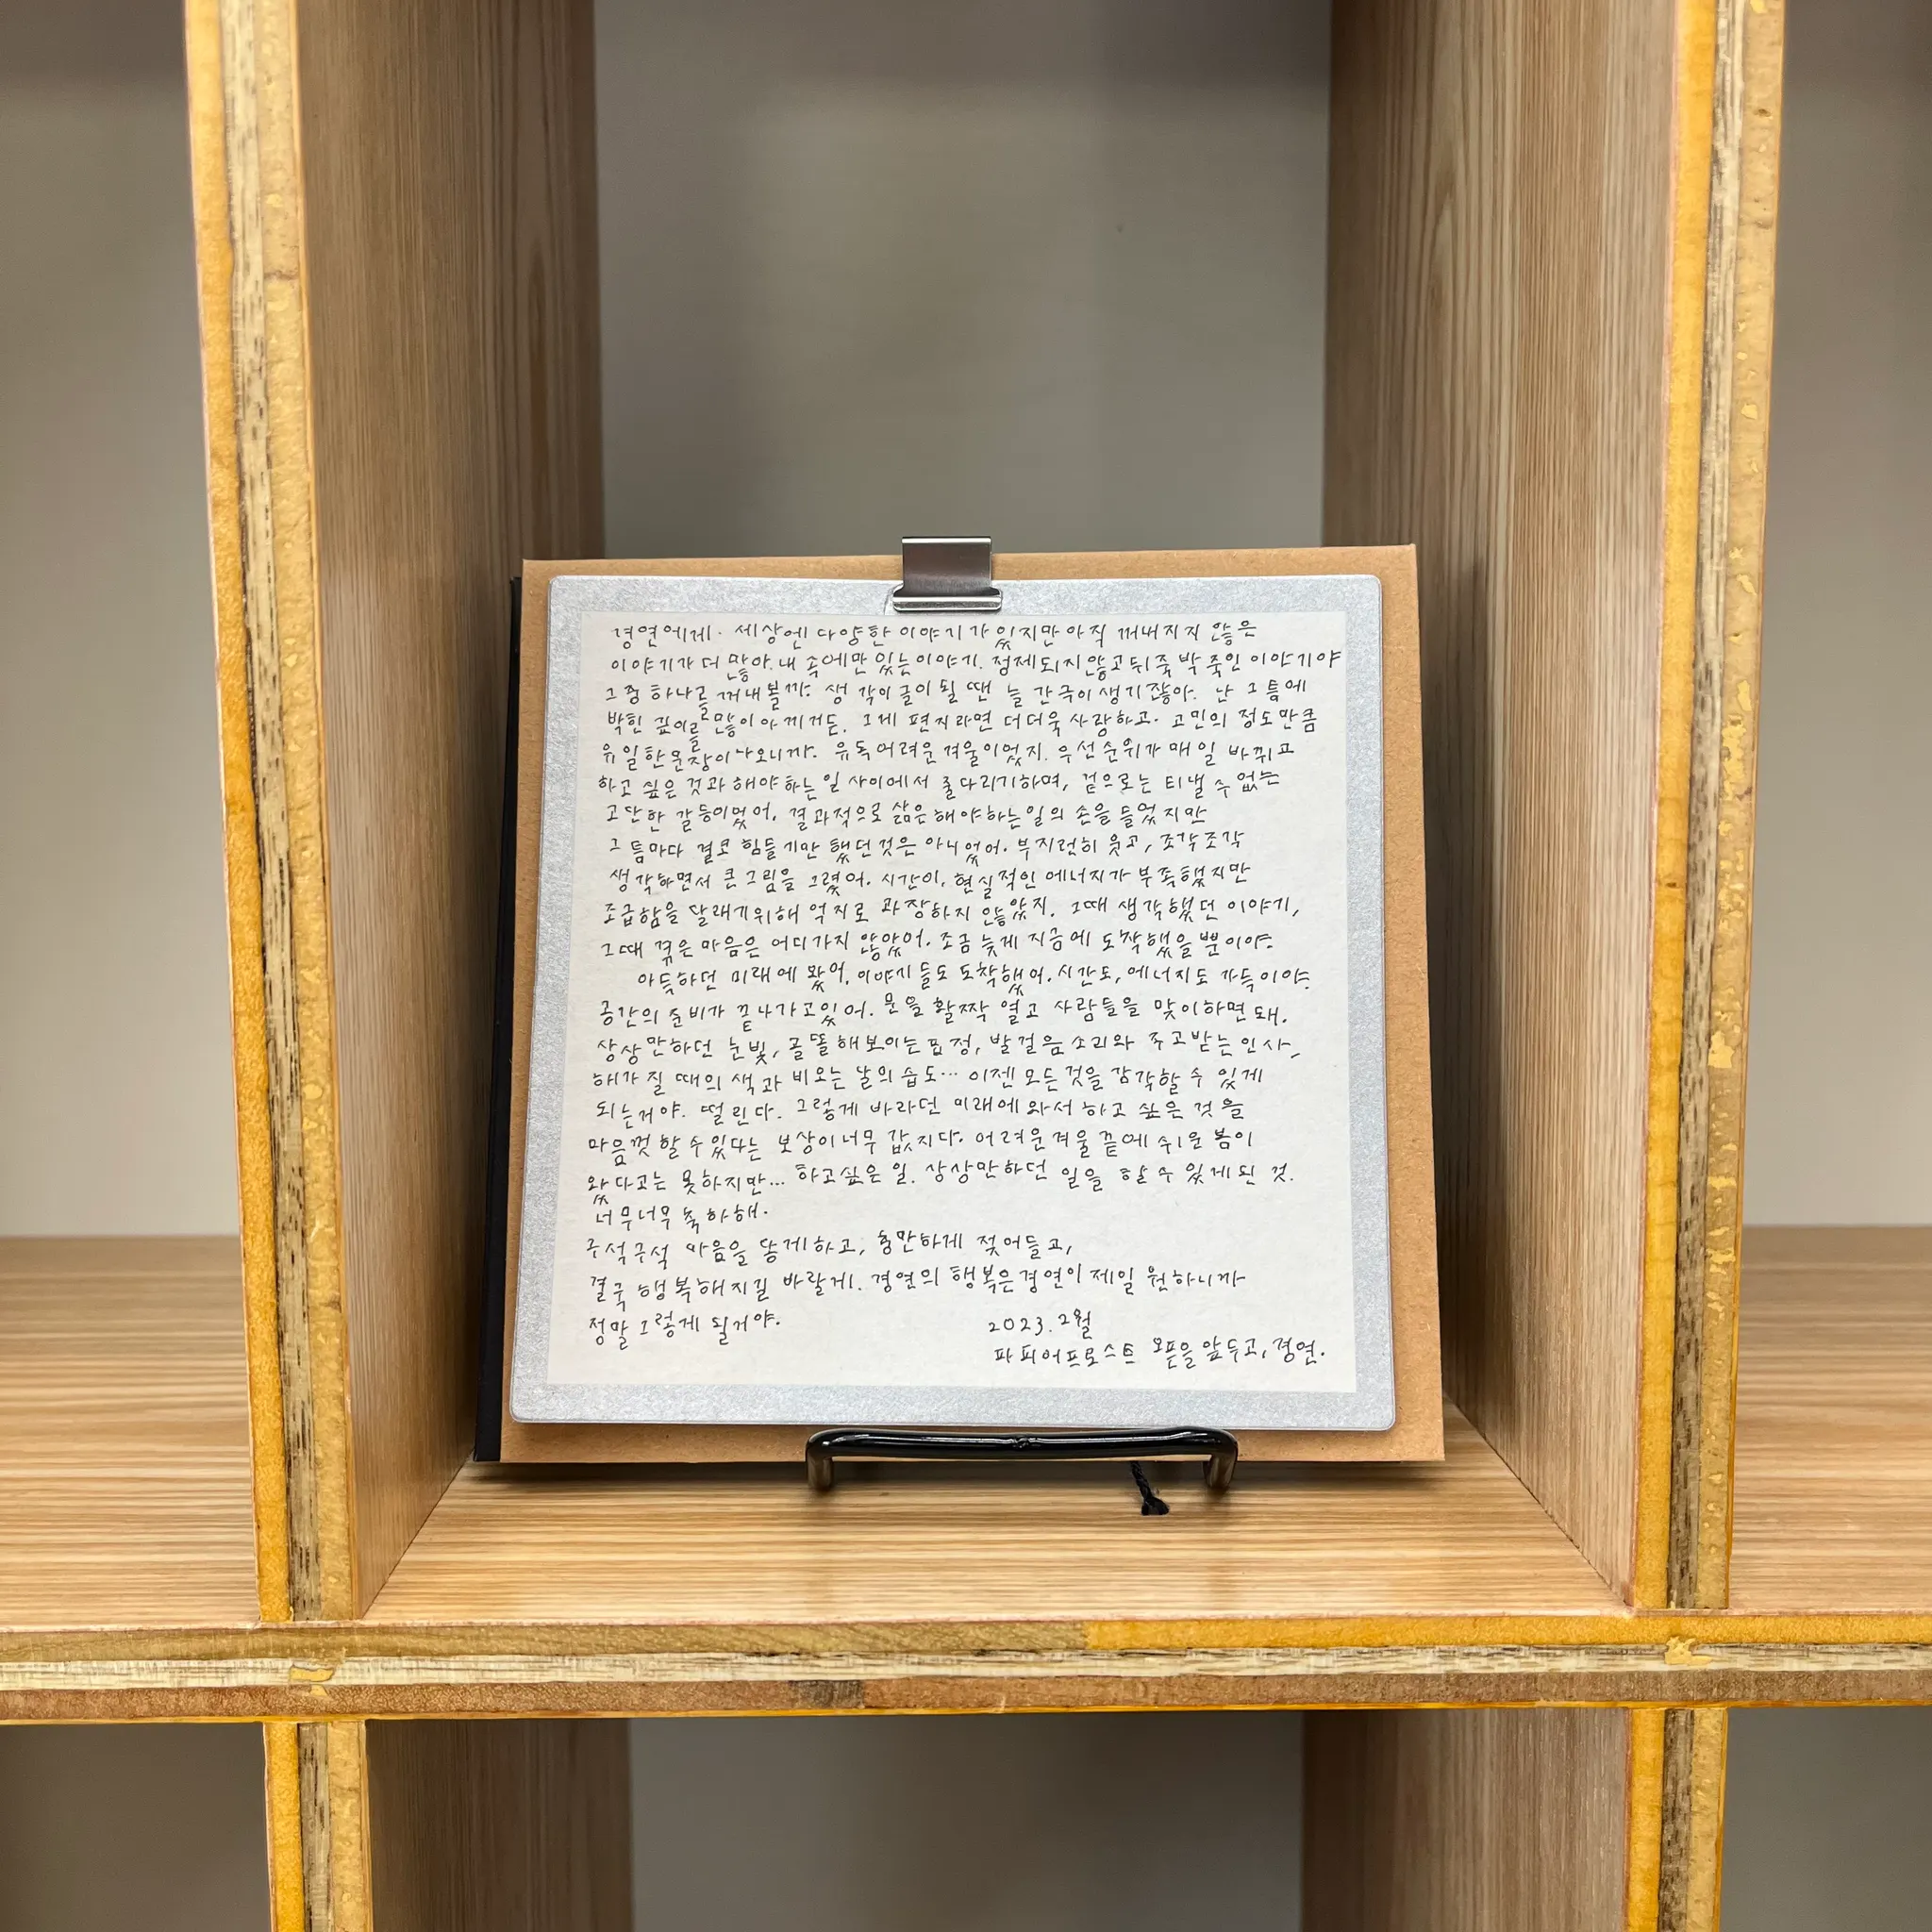 경연에게. 세상엔 다양한 이야기가 있지만 아직 꺼내지지 않은
이야기가 더 많아. 내 속에만 있는 이야기. 정제되지 않고 뒤죽박죽인 이야기야
그 중 하나를 꺼내볼까. 생각이 글이 될 땐 늘 간극이 생기잖아. 난 그 틈에
박힌 깊이를 많이 아끼거든. 그게 편지라면 더더욱 사랑하고. 고민의 정도만큼
유일한 문장이 나오니까. 유독 어려운 겨울이었지. 우선순위가 매일 바뀌고
하고 싶은 것과 해야 하는 일 사이에서 줄다리기하며, 겉으로는 티낼 수 없는
고단한 갈등이었어. 결과적으로 삶은 해야하는 일의 손을 들었지만
그 틈마다 결코 힘들기만 했던 것은 아니었어. 부지런히 웃고, 조각조각
생각하면서 큰 그림을 그렸어. 시간이, 현실적인 에너지가 부족했지만
조급함을 달래기위해 억지로 과장하지 않았지. 그때 생각했던 이야기,
그때 겪은 마음은 어디가지 않았어. 조금 늦게 지금에 도착했을 뿐이야.
아득하던 미래에 왔어. 이야기들도 도착했어. 시간도, 에너지도 가득이야.
공간의 준비가 끝나가고있어. 문을 활짝 열고 사람들을 맞이하면 돼.
상상만하던 눈빛, 골똘해보이는 표정, 발걸음 소리와 주고받는 인사,
해가 질 때의 색과 비오는 날의 습도… 이젠 모든 것을 감각할 수 있게
되는거야. 떨린다. 그렇게 바라던 미래에 와서 하고 싶은 것을
마음껏 할 수 있다는 보상이 너무 값지다. 어려운 겨울 끝에 쉬운 봄이
왔다고는 못하지만… 하고싶은 일. 상상만하던 일을 할 수 있게 된 것.
너무너무 축하해.
구석구석 마음을 닿게하고, 충만하게 젖어들고,
결국 행복해지길 바랄게. 경연의 행복은 경연이 제일 원하니까
정말 그렇게 될거야.
2023. 2월
파피어프로스트 오픈을 앞두고, 경연.